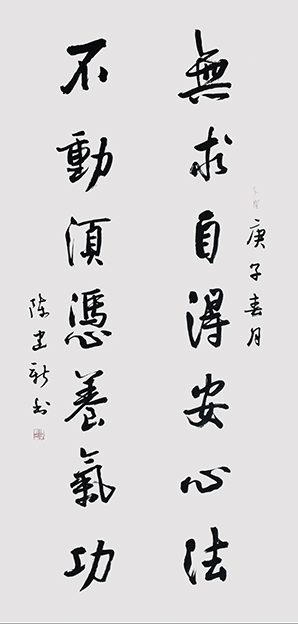 庚子春月
無求自得安心法
不動須憑養氣功
陈建新书